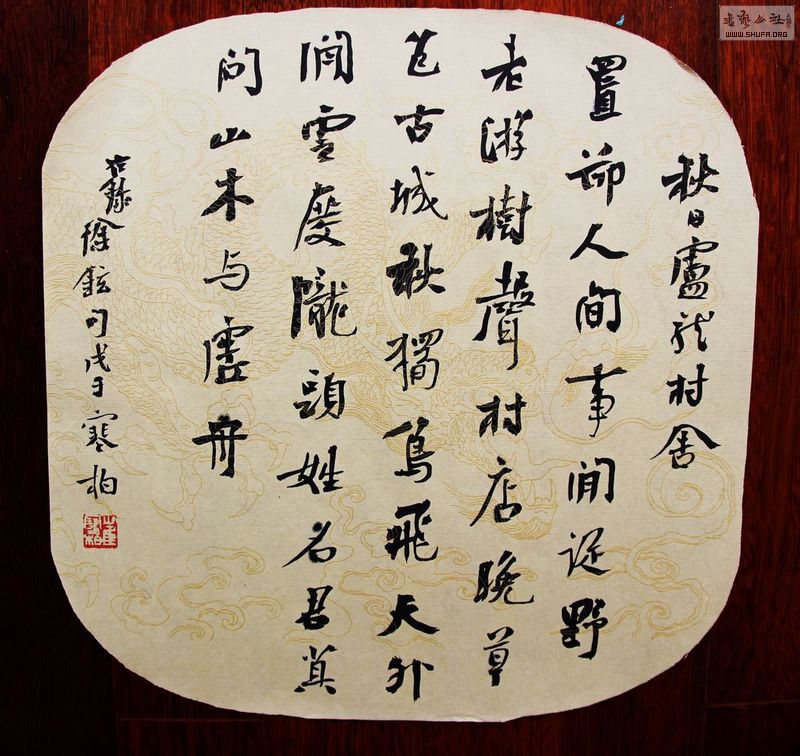 秋日盧龍村舍
置卻人間事閒從野
老游樹聲村店晚草
色古城秋獨鳥飛天外
閒雲度隴頭姓名君莫
問山木与虛舟
右錄徐鉉句戊子寒柏
書藝公社
WWW.SHUFA.ORG